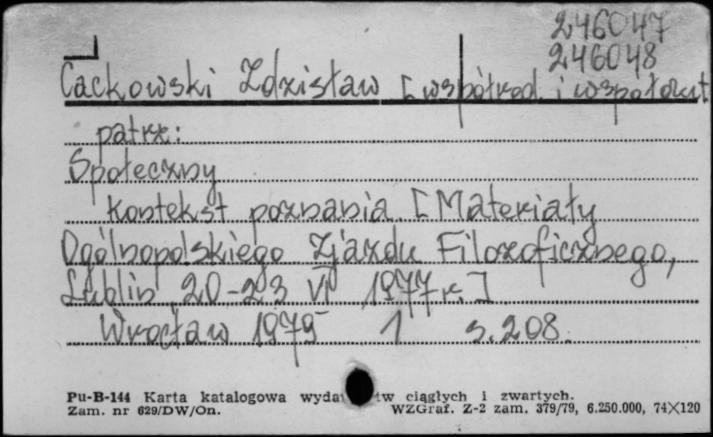 246047
246048
Cackowski Zdzisław [współred. i współaut
patrz:
Społeczny
kontekst poznania. [Materiały
Ogólnopolskiego Zjazdu Filozoficznego,
Lublin 20-23 VI 1977 r.]
Wrocław 1979 1 s. 208.
Pu-B-144 Karta katalogowa wydawnictw ciągłych i zwartych.
Zam. nr 629/DW/On. WZGraf. Z-2 zam. 379/79, 6.250.000, 74×120